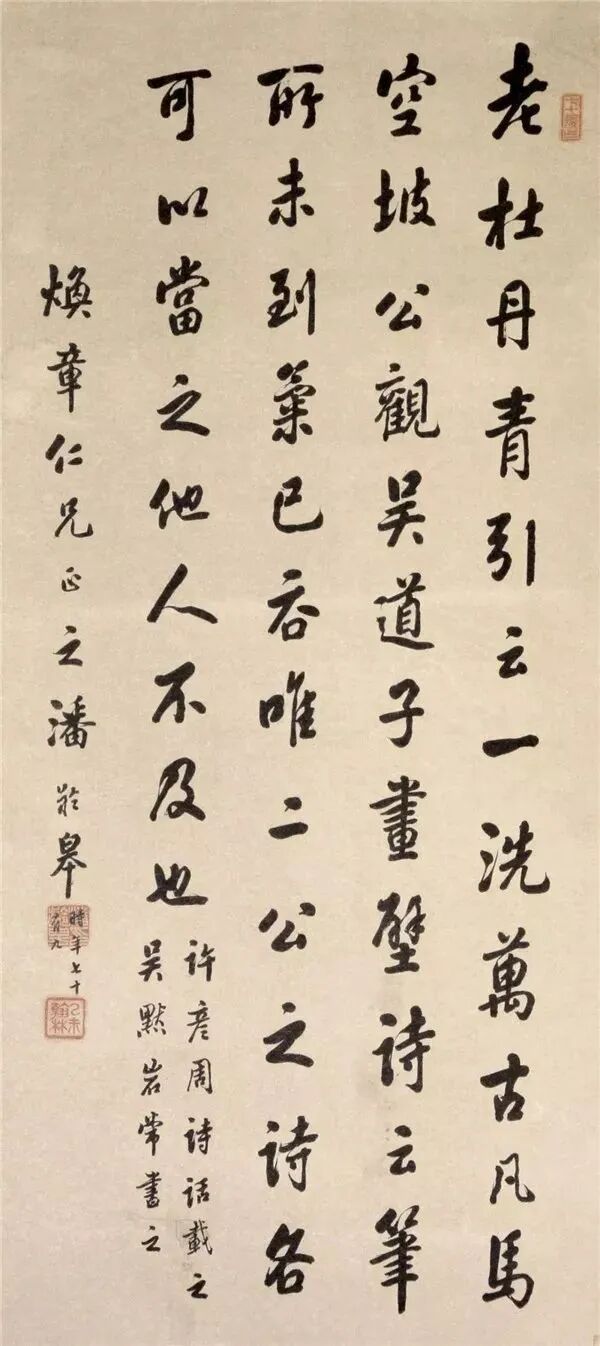 老杜丹青引云一洗萬古凡馬
空坡公觀吴道子畫壁詩云筆
所未到氣已吞唯二公之詩各
可以當之他人不及也
許彦周詩話載之
吴默岩常書之
煥章仁兄正之潘齡皋
時年七十
有九
乙未翰林